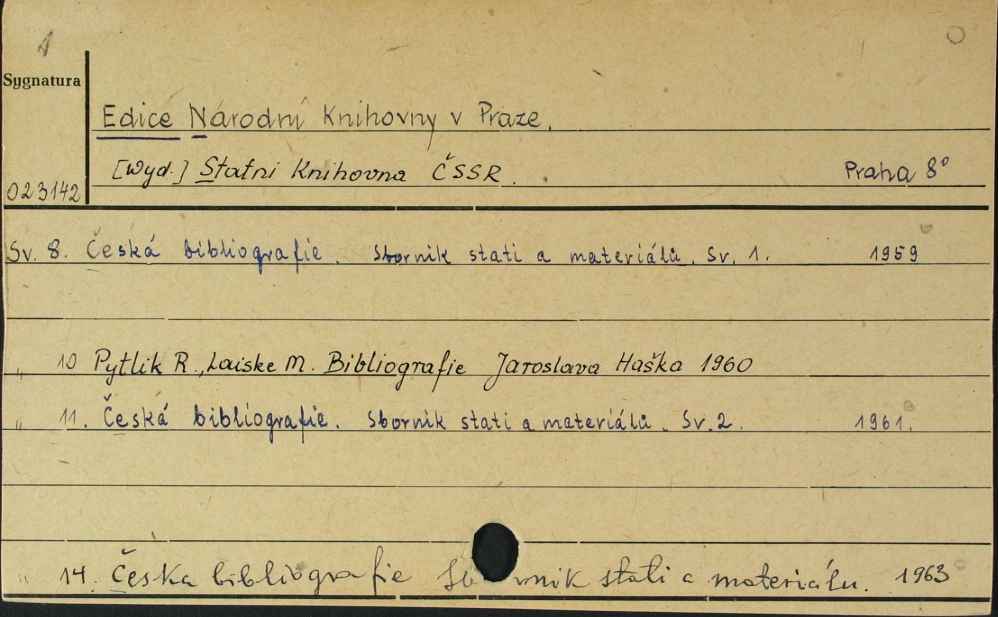 1
Sygnatura
Edice Národní Knihovny v Praze.
[Wyd.] Statni Knihovna ČSSR. Praha 8°
023142
Sv. 8. Česká bibliografie. Sborník stati a materiálů. Sv. 1. 1959
" 10 Pytlik R., Laiske M. Bibliografie Jaroslava Haška 1960
" 11. Česká bibliografie. Sborník stati a materiálů. Sv. 2. 1961.
" 14. Česka bibliografie Sbornik stati a materiálu. 1963